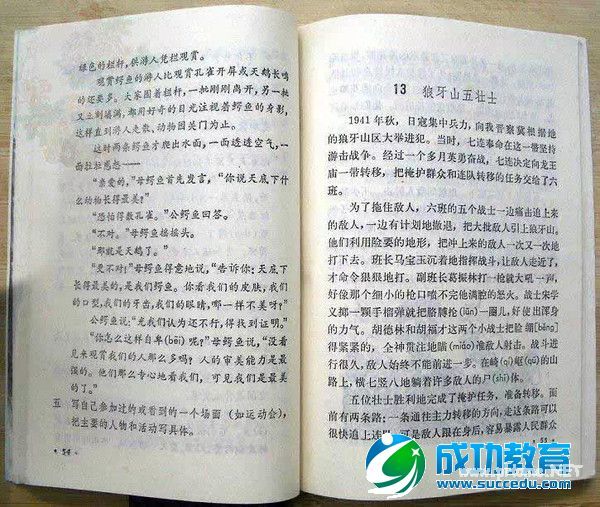 绿色的栏杆，供游人凭栏观赏。
观赏鳄鱼的游人比观赏孔雀开屏或天鹅长鸣
的还要多。大家围着栏杆，一批刚刚离开，另一批
又立刻補满，都用好奇的目光注视着鳄鱼的身影，
这样直到游人走散，动物园关门为止。
这时两条鳄鱼才爬出水面，一面透透空气，一
面拉拉感想——
“亲爱的，”母鳄鱼首先发言，“你说天底下什
么动物长得最美？”
“恐怕得数孔雀。”公鳄鱼回答。
“不对。”母鳄鱼摇摇头。
“那就是天鹅了。”
“更不对！”母鳄鱼得意地说，“告诉你：天底下
长得最美的，是我们鳄鱼。你看我们的皮肤，我们
的口型，我们的牙齿，我们的眼睛，哪一样不美呀？”
公鳄鱼说：“光我们认为还不行，得找到证明。”
“你怎么这样自卑(bēi)呢？”母鳄鱼说，“没看
见来观赏我们的人那么多吗？人的审美能力是最
强的。他们那么专心地看我们，可见我们是最美
的了。”
五 写自己参加过的或看到的一个场面（如运动会），
把主要的人物和活动写具体。
· 54 ·
13 狼牙山五壮士
1941 年秋，日寇集中兵力，向我晋察冀根据地
的狼牙山区大举进犯。当时，七连奉命在这一带坚持
游击战争。经过一个多月英勇奋战，七连决定向龙王
庙一带转移，把掩护群众和连队转移的任务交给了六
班。
为了拖住敌人，六班的五个战士一边痛击追上来
的敌人，一边有计划地撤退，把大批敌人引上狼牙山。
他们利用险要的地形，把冲上来的敌人一次又一次地
打下去。班长马宝玉沉着地指挥战斗，让敌人走近了，
才命令狠狠地打。副班长葛振林打一枪就大吼一声，
好像那个细小的枪口喷不完他满腔的怒火。战士宋学
义掷一颗手榴弹就把胳膊抡(lūn)一圈儿，好使出浑身
的力气。胡德林和胡福才这两个小战士把脸绷[běng]
得紧紧的，全神贯注地瞄(miáo)准敌人射击。战斗进
行很久，敌人始终不能前进一步。在崎(qí)岖(qū)的山
路上，横七竖八地躺着许多敌人的尸(shī)体。
五位壮士胜利地完成了掩护任务，准备转移。面
前有两条路：一条通往主力转移的方向，走这条路可以
很快追上连队，可是敌人跟在身后，容易暴露人民群众
· 55 ·
成功教育
www.succedu.com